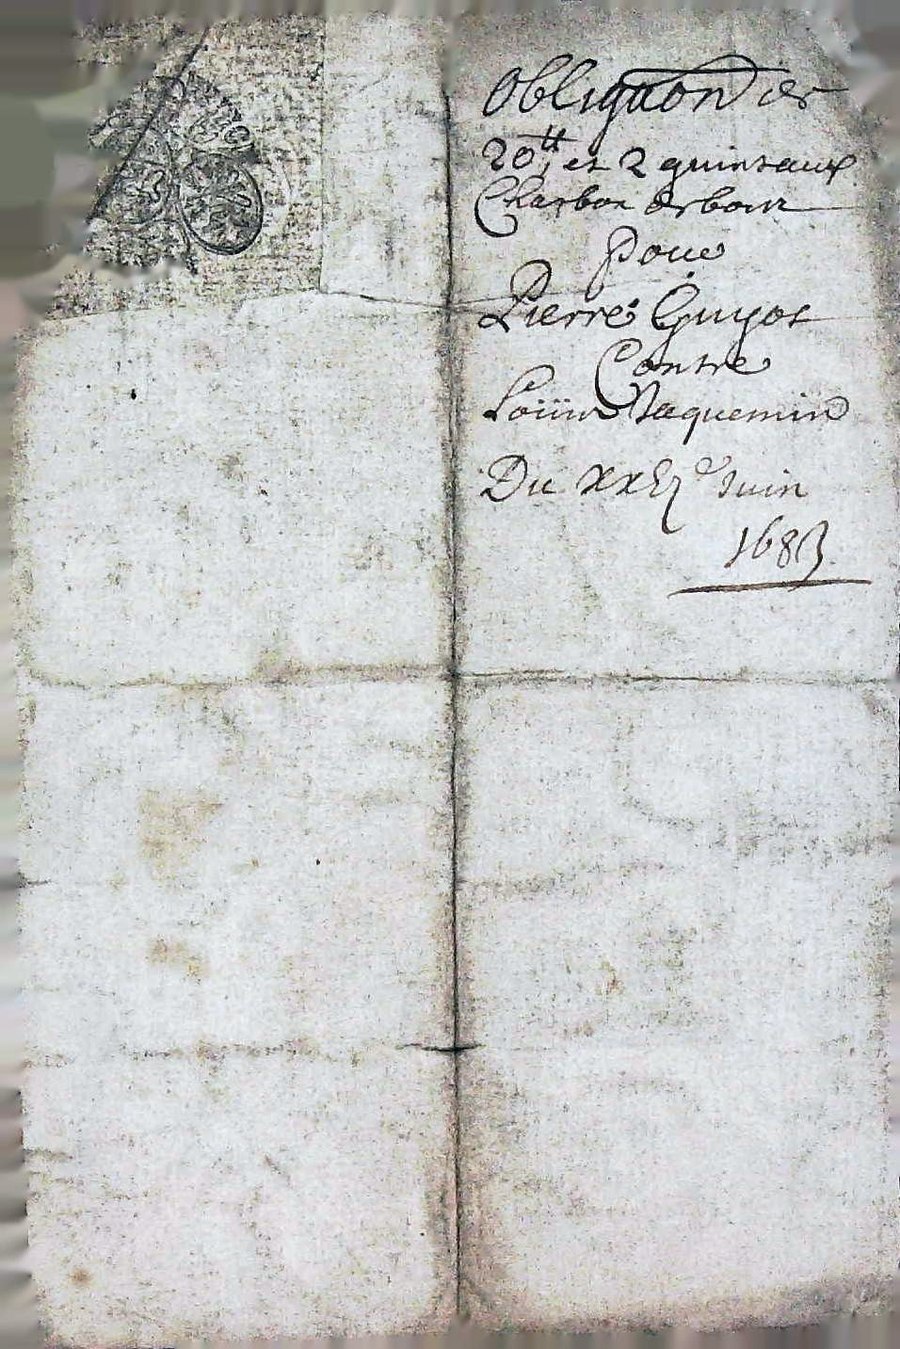 Obliga͞on de
20tt et 2 quintaux
Charbon de
pour
Pierre Guyot
Contre
Loüis Jaquemin
Du Juin
1683